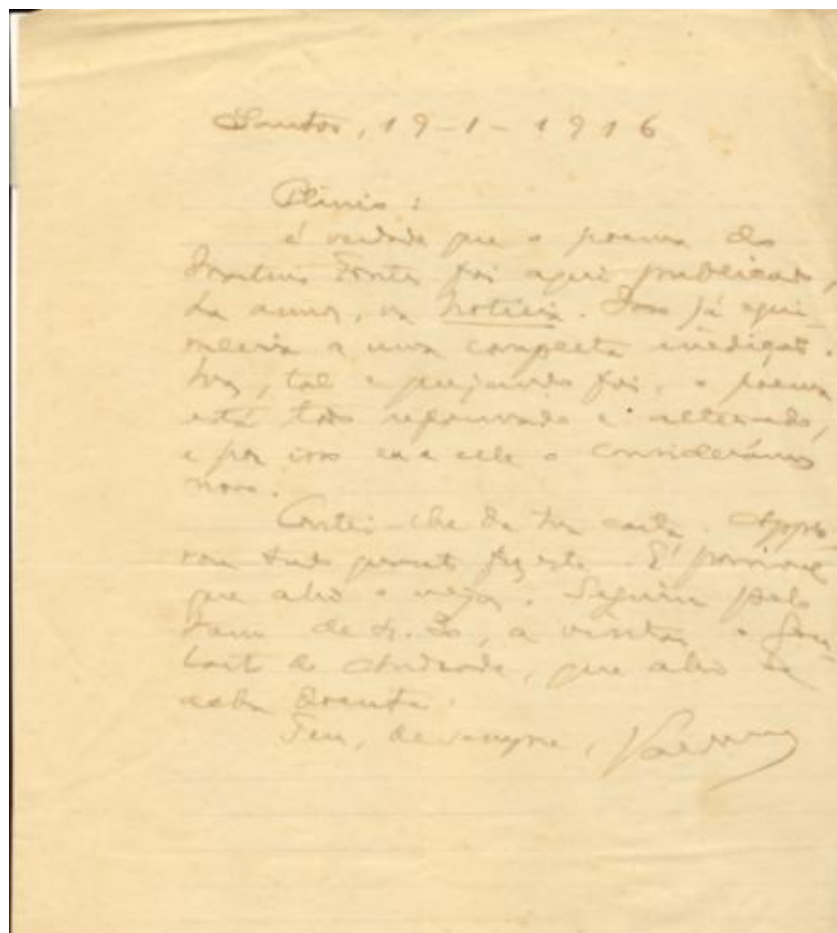 Santos, 19-1-1916
Plinio:
é verdade que o poema do
Martins Fontes foi aqui publicado,
ha annos, na Noticia. Isso já equi-
a uma completa
tal e foi, o poema
está todo e alterado,
e por isso eu e elle o consideramos
novo.
Contei-lhe da tua carta. Appro-
vou tudo quanto fizeste. É possivel
que ahi o vejas. Seguiu pelo
de a visitar o
de Andrade, que ahi se
acha doente.
Teu, de sempre,